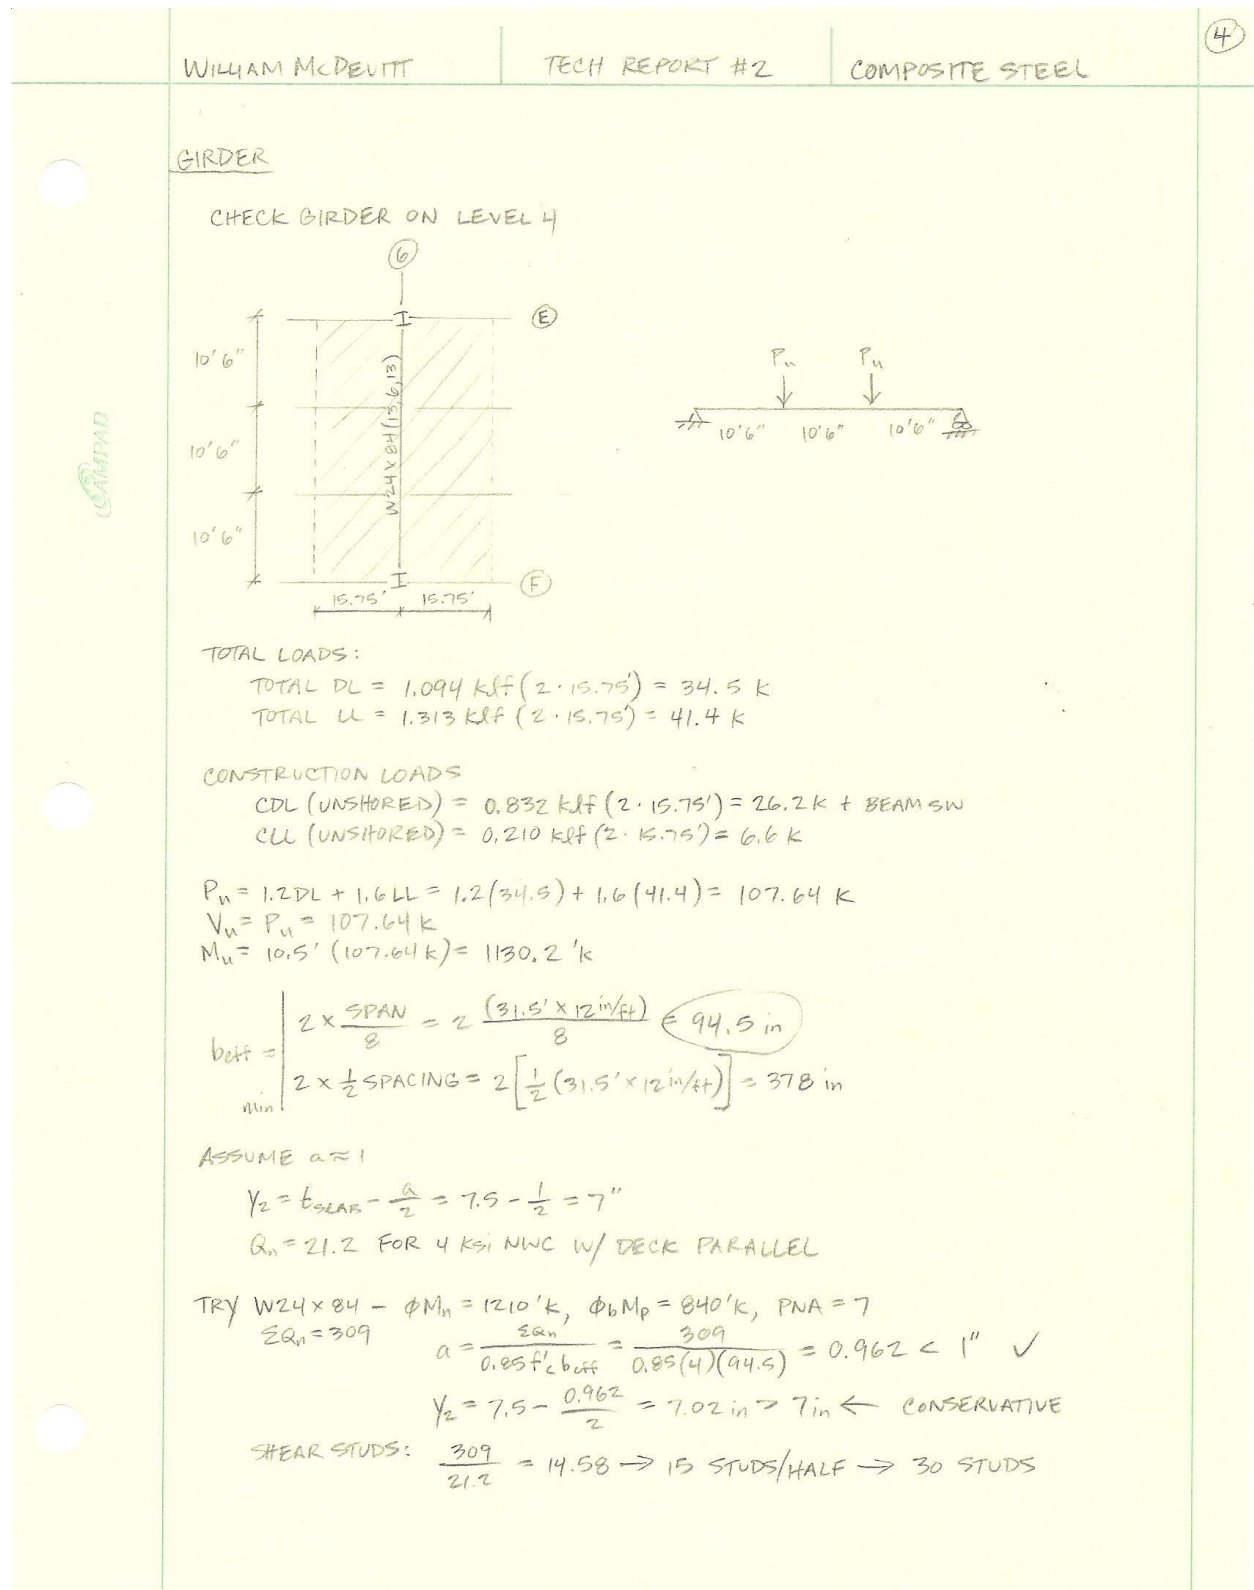 4
WILLIAM McDEVITT TECH REPORT #2 COMPOSITE STEEL
GIRDER
CHECK GIRDER ON LEVEL 4
6
E
10'6"
10'6"
10'6"
W24×84 (13,6,13)
F
15.75' 15.75'
Pu Pu
10'6" 10'6" 10'6"
CAMPAD
TOTAL LOADS:
TOTAL DL = 1.094 klf (2·15.75') = 34.5 k
TOTAL LL = 1.313 klf (2·15.75') = 41.4 k
CONSTRUCTION LOADS
CDL (UNSHORED) = 0.832 klf (2·15.75') = 26.2 k + BEAM SW
CLL (UNSHORED) = 0.210 klf (2·15.75') = 6.6 k
Pu = 1.2DL + 1.6LL = 1.2(34.5) + 1.6(41.4) = 107.64 k
Vu = Pu = 107.64 k
Mu = 10.5' (107.64 k) = 1130.2 'k
beff = min | 2 × SPAN/8 = 2 (31.5' × 12 in/ft)/8 = 94.5 in
2 × 1/2 SPACING = 2[1/2 (31.5' × 12 in/ft)] = 378 in
ASSUME a ≈ 1
Y2 = tSLAB - a/2 = 7.5 - 1/2 = 7"
Qn = 21.2 FOR 4 ksi NWC W/ DECK PARALLEL
TRY W24×84 - ϕMn = 1210 'k, ϕbMp = 840 'k, PNA = 7
ΣQn = 309 a = ΣQn/0.85f'c beff = 309/0.85(4)(94.5) = 0.962 < 1" ✓
Y2 = 7.5 - 0.962/2 = 7.02 in > 7 in ← CONSERVATIVE
SHEAR STUDS: 309/21.2 = 14.58 → 15 STUDS/HALF → 30 STUDS